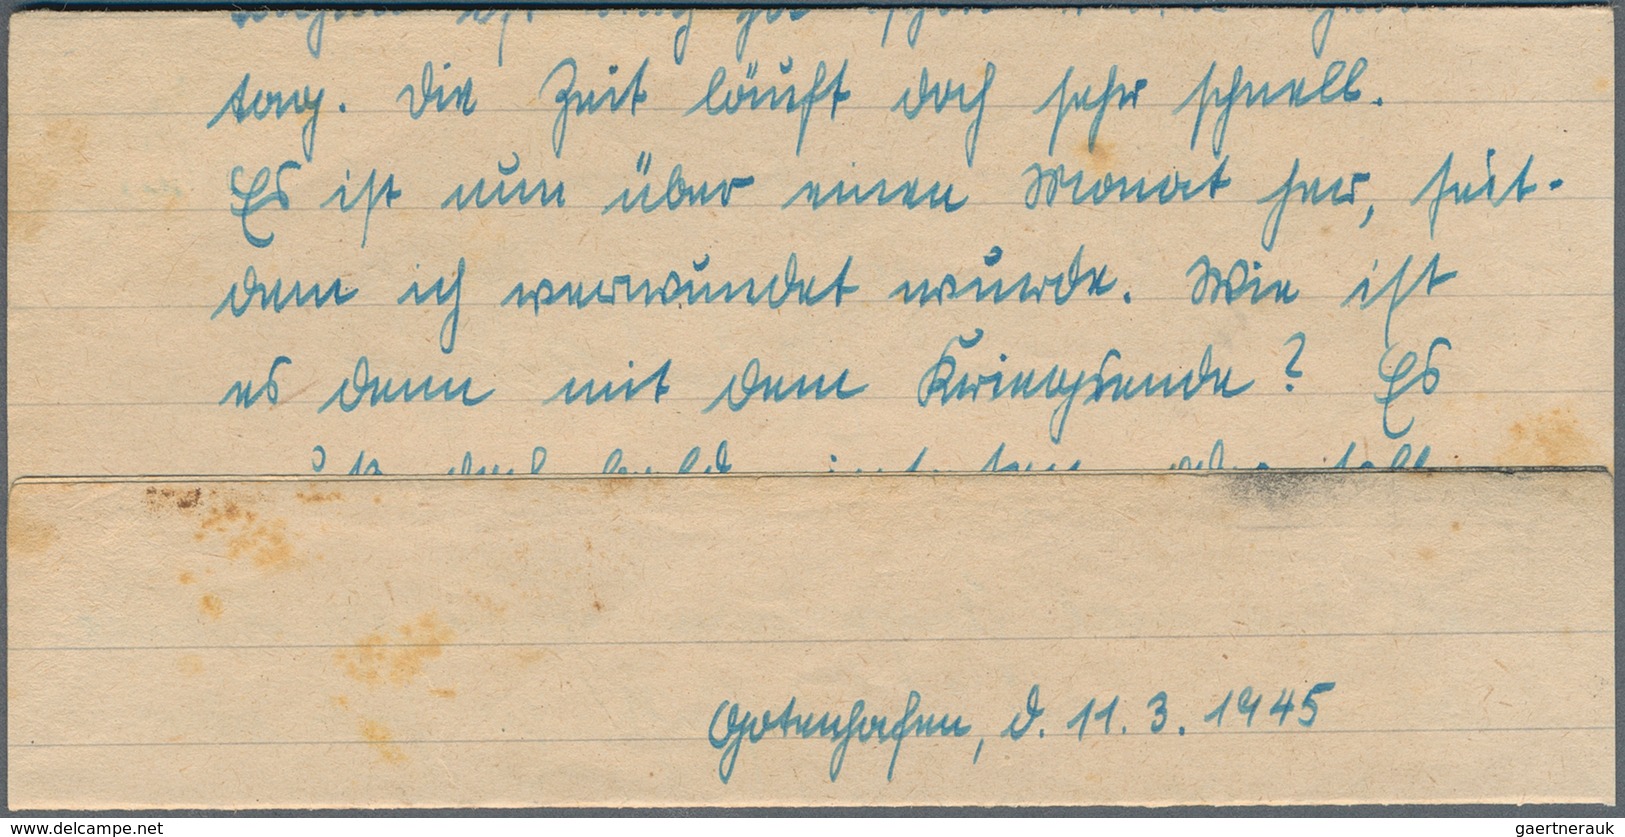 tag. Die Zeit läuft doch sehr schnell.
Es ist nun über einen Monat her, seit-
dem ich verwundet wurde. Wie ist
es denn mit dem Kriegsende? Es
Gotenhafen, d. 11. 3. 1945
www.delcampe.net
gaertnerauk